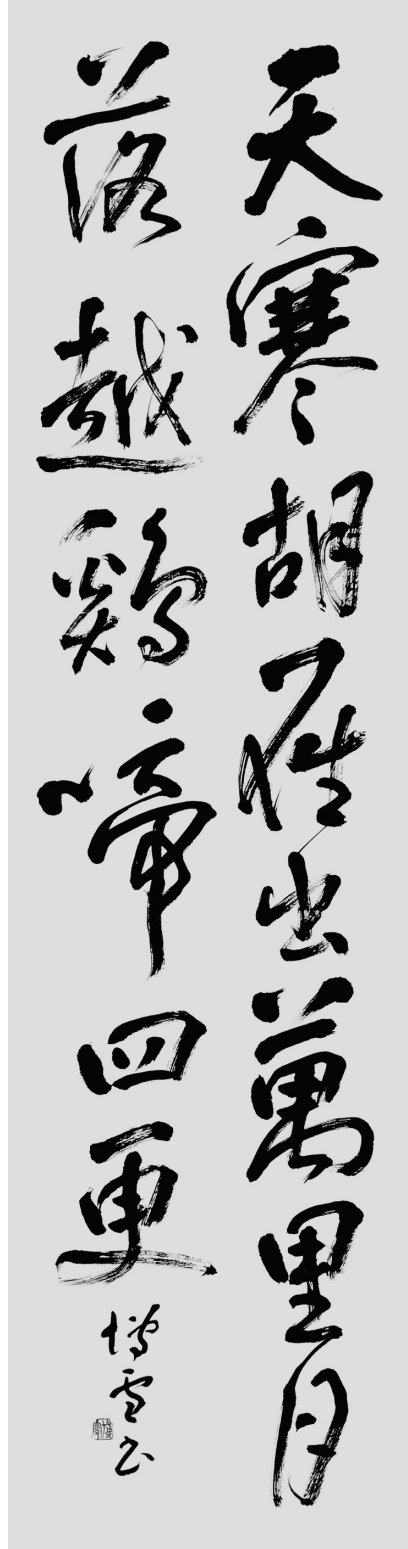 天寒胡雁出萬里月
落越鷄啼四更
雪书